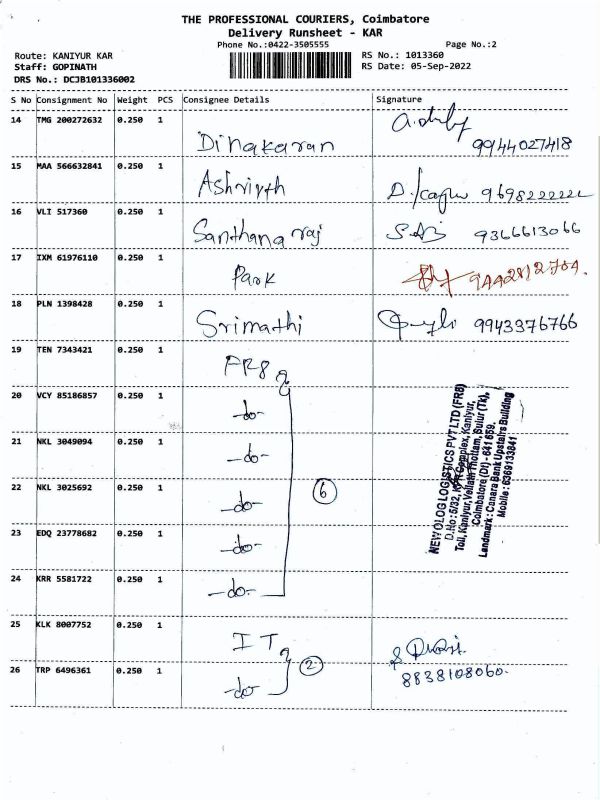 THE PROFESSIONAL COURIERS, Coimbatore
Delivery Runsheet - KAR
Phone No.:0422-3505555 Page No.:2
Route: KANIYUR KAR RS No.: 1013360
Staff: GOPINATH RS Date: 05-Sep-2022
DRS No.: DCJB101336002
S No Consignment No Weight PCS Consignee Details Signature
14 TMG 200272632 0.250 1 Dinakaran 9944027418
15 MAA 566632841 0.250 1 Ashrivth 9698222222
16 VLI 517360 0.250 1 Santhana raj 9366613066
17 IXM 61976110 0.250 1 Park
18 PLN 1398428 0.250 1 Srimathi 9943376766
19 TEN 7343421 0.250 1 FR8
20 VCY 85186857 0.250 1 -do-
21 NKL 3049094 0.250 1 -do-
22 NKL 3025692 0.250 1 -do- 6
23 EDQ 23778682 0.250 1 -do-
24 KRR 5581722 0.250 1 -do-
NEW OLOG LOGISTICS PVT LTD (FR8)
D.No: 5/32, Complex, Kaniyur,
Toll, Kaniyur, Thottam, Sulur (Tk),
Coimbatore (Dt) - 641 659.
Landmark : Canara Bank Upstairs Building
Mobile : 6369133841
25 KLK 8007752 0.250 1 IT
26 TRP 6496361 0.250 1 -do- 2 8838108060.